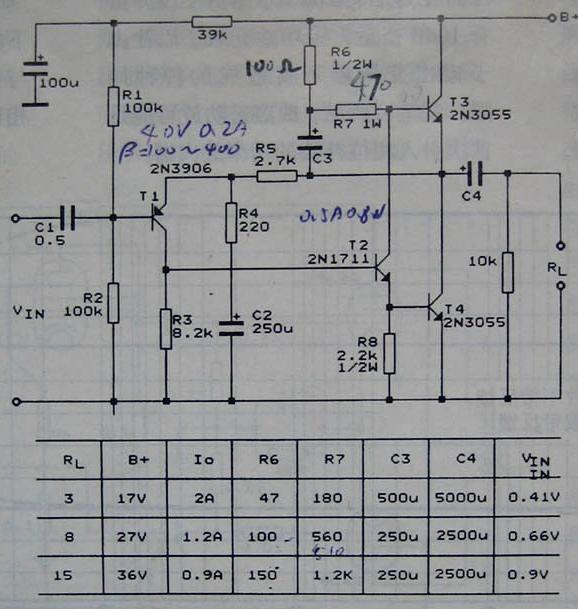 B+
39k
100u
100Ω
R6
1/2W
470
R1
100k
R7 1W
T3
2N3055
40V 0.2A
β=100~400
2N3906
R5
2.7k
C3
C4
T1
R4
220
0.5A 0.8W
T2
2N1711
C1
0.5
10k
RL
VIN
R2
100k
R3
8.2k
C2
250u
T4
2N3055
R8
2.2k
1/2W
RL B+ Io R6 R7 C3 C4 VIN
IN
3 17V 2A 47 180 500u 5000u 0.41V
8 27V 1.2A 100 560 250u 2500u 0.66V
15 36V 0.9A 150 1.2K 250u 2500u 0.9V